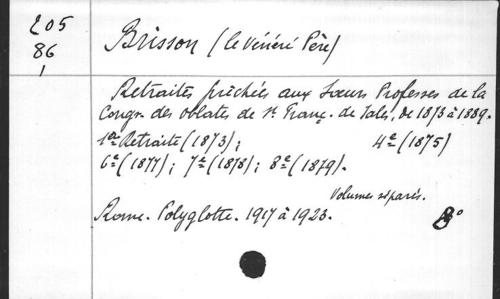 205
86
1
Brisson (le Vénéré Père)
Retraites prêchées aux Sœurs Professes de la
Congr. des Oblates de St. Franç. de Sales, de 1873 à 1889.
1re Retraite (1873); 4e (1875)
6e (1877); 7e (1878); 8e (1879).
Volumes séparés.
Rome. Polyglotte. 1917 à 1923.
8°